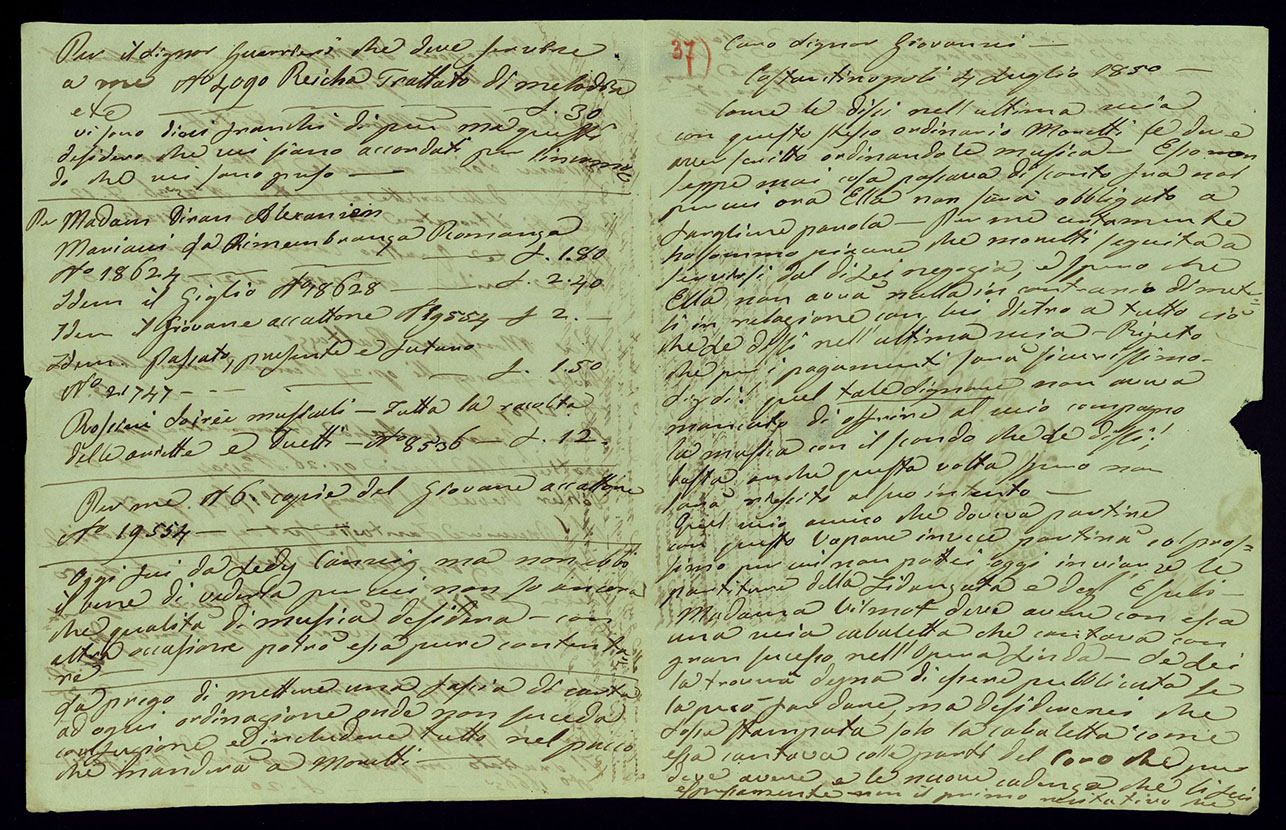 Per il Signor Guerrieri che deve servire
a me No 4090 Reicha Trattato di melodia
etc — £. 30
vi sono dieci franchi di più ma questi
desidero che mi siano accordati per l'incomo
do che mi sono preso —
Per Madam Diran Alexanien
Mariani La Rimembranza Romanza
No 18624 — £. 1.80
Idem il Giglio No 18628 — £. 2.40
Idem Il Giovane accattone No 19554 — £ 2. —
Idem Passato, presente e futuro
No 21747 — £. 1.50
Rossini Soirée musicali — Tutta la raccolta
delle ariette e duetti — No 8536 — £. 12.
Per me. No 6 copie del Giovane accattone
No 19554 —
Oggi fui da Ledy Canning ma non ebbi
il bene di vederla per cui non so ancora
che qualità di musica desidera — con
altra occasione potrò essa pure contenta
re —
La prego di mettere una fascia di carta
ad ogni ordinazione onde non succeda
confusione ed includere tutto nel pacco
che manderà a Moretti —
37)
Caro Signor Giovanni —
Costantinopoli 4 Luglio 1850 —
Come le dissi nell'ultima mia
con questo stesso ordinario Moretti le deve
aver scritto ordinandole musica — Esso non
seppe mai cosa passava di sconto fra noi
per cui ora Ella non sarà obbligato a
fargliene parola — Per me certamente
ho sommo piacere che Moretti seguita a
servirsi dal di Lei negozio, e spero che
Ella non avrà nulla in contrario di met-
ersi in relazione con lui dietro a tutto ciò
che Le dissi nell'ultima mia — Ripeto
che per i pagamenti sarà sicurissimo —
quel tale Signore non aveva
mancato di offrire al mio compagno
la musica con il sconto che Le dissi!
basta anche questa volta spero non
sarà riescito al suo intento —
Quel mio amico che doveva partire
con questo Vapore invece partirà col pros-
simo per cui non potei oggi inviare le
partiture della Fidanzata e degl'Esuli —
Madama Vilmot deve avere con essa
una mia cabaletta che cantava con
gran successo nell'Opera Linda — Se Lei
la trova degna di essere pubblicata se
la può far dare, ma desidererei che
fosse stampata solo la cabaletta come
essa cantava colle parti del Coro che pur
deve avere e le nuove cadenze che li feci
espressamente non il primo recitativo nè